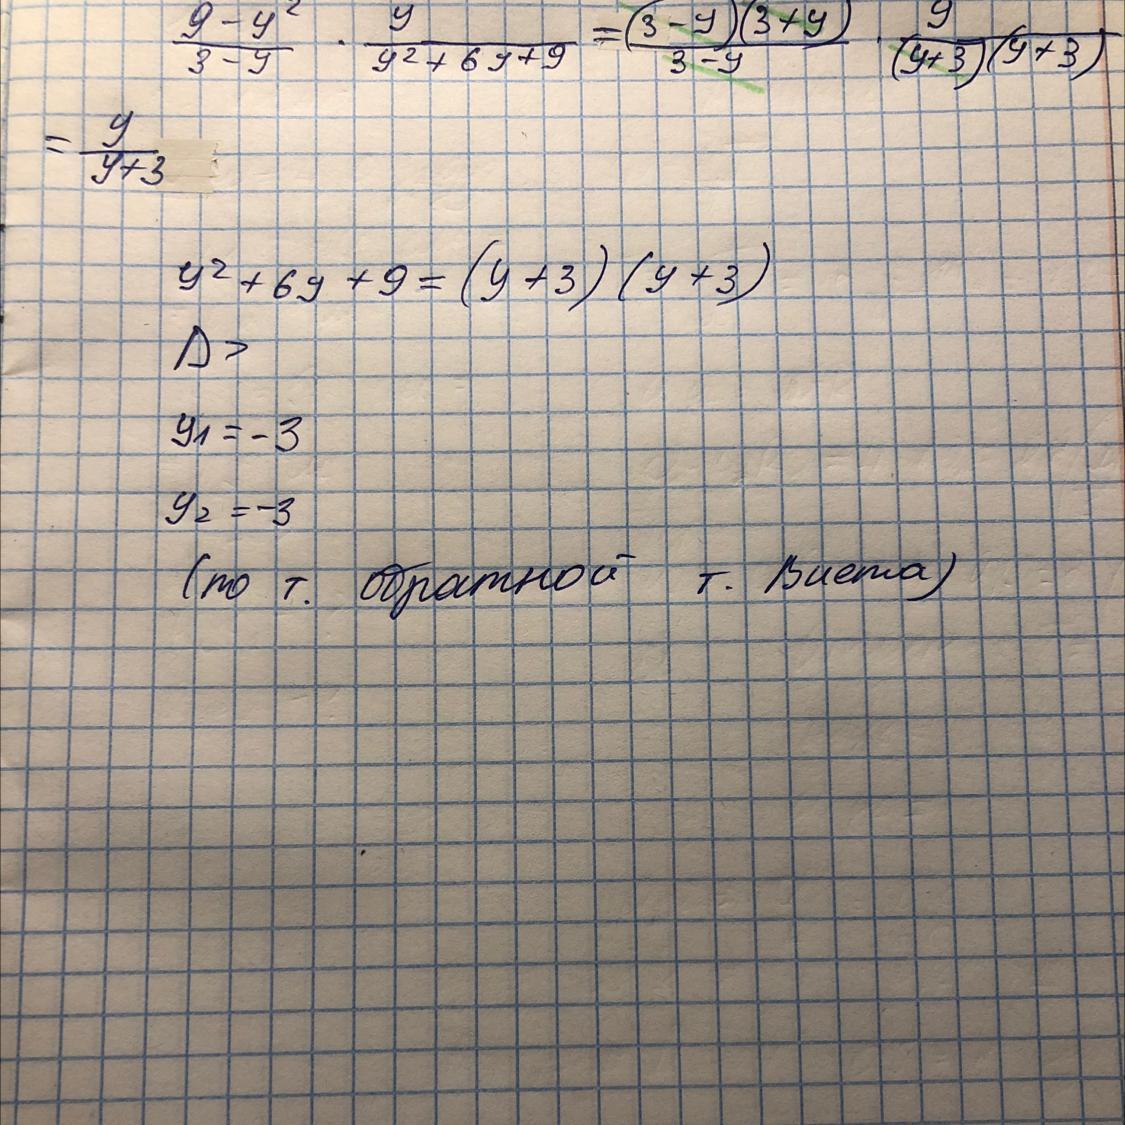 9-y² / 3-y · y / y²+6y+9 = (3-y)(3+y) / 3-y · y / (y+3)(y+3)
= y / y+3
y²+6y+9=(y+3)(y+3)
D>
y1=-3
y2=-3
(по т. обратной т. Виета)